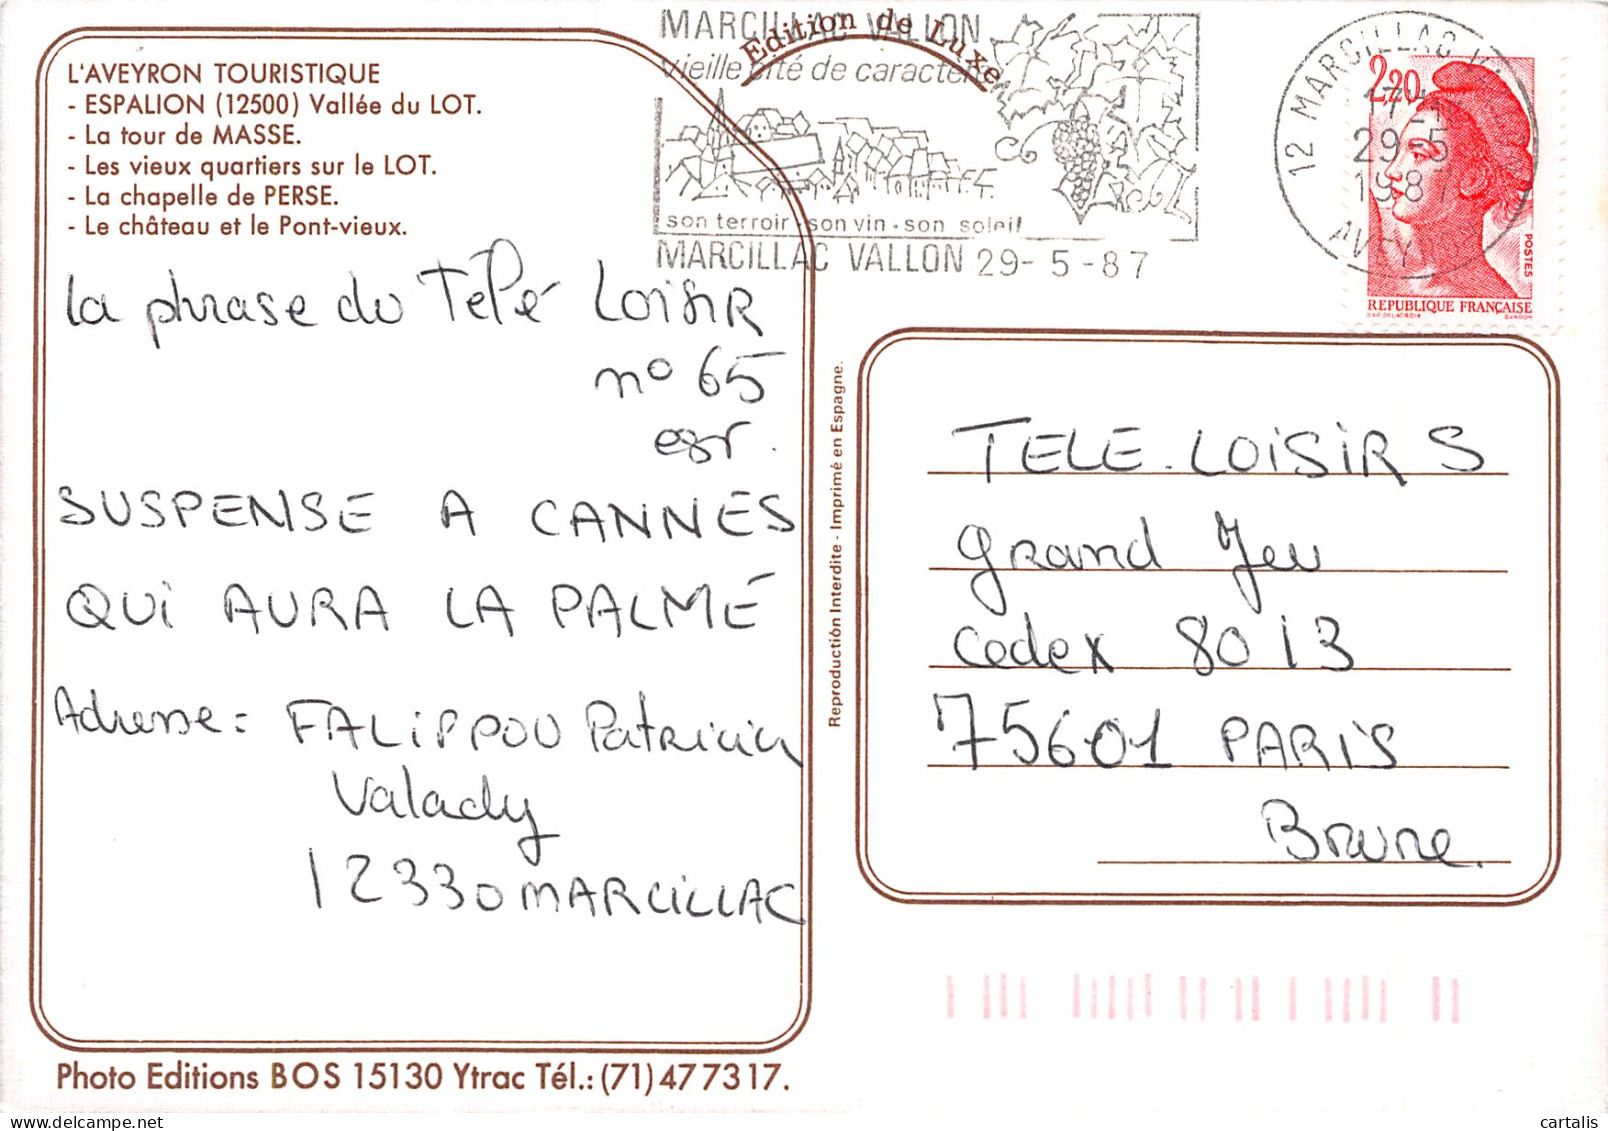 L'AVEYRON TOURISTIQUE
- ESPALION (12500) Vallée du LOT.
- La tour de MASSE.
- Les vieux quartiers sur le LOT.
- La chapelle de PERSE.
- Le château et le Pont-vieux.
Edition de Luxe
MARCILLAC VALLON
vieille cité de caractère
son terroir · son vin · son soleil
MARCILLAC VALLON 29- 5 -87
12 MARCILLAC V.
29-5
1987
AVEY
2,20
POSTES
REPUBLIQUE FRANÇAISE
DAP. DELACROIX GANDON
La phrase du Télé LOisiR
n° 65
est.
SUSPENSE A CANNES
QUi AURA LA PALME
Adresse = FALiPPOU Patricia
Valady
12330 MARCiLLAC
Reproduction Interdite - Imprimé en Espagne.
TELE. LOiSiRS
Grand Jeu
Cedex 8013
75601 PARiS
Brune.
Photo Editions BOS 15130 Ytrac Tél.: (71) 47 73 17.
cartalis